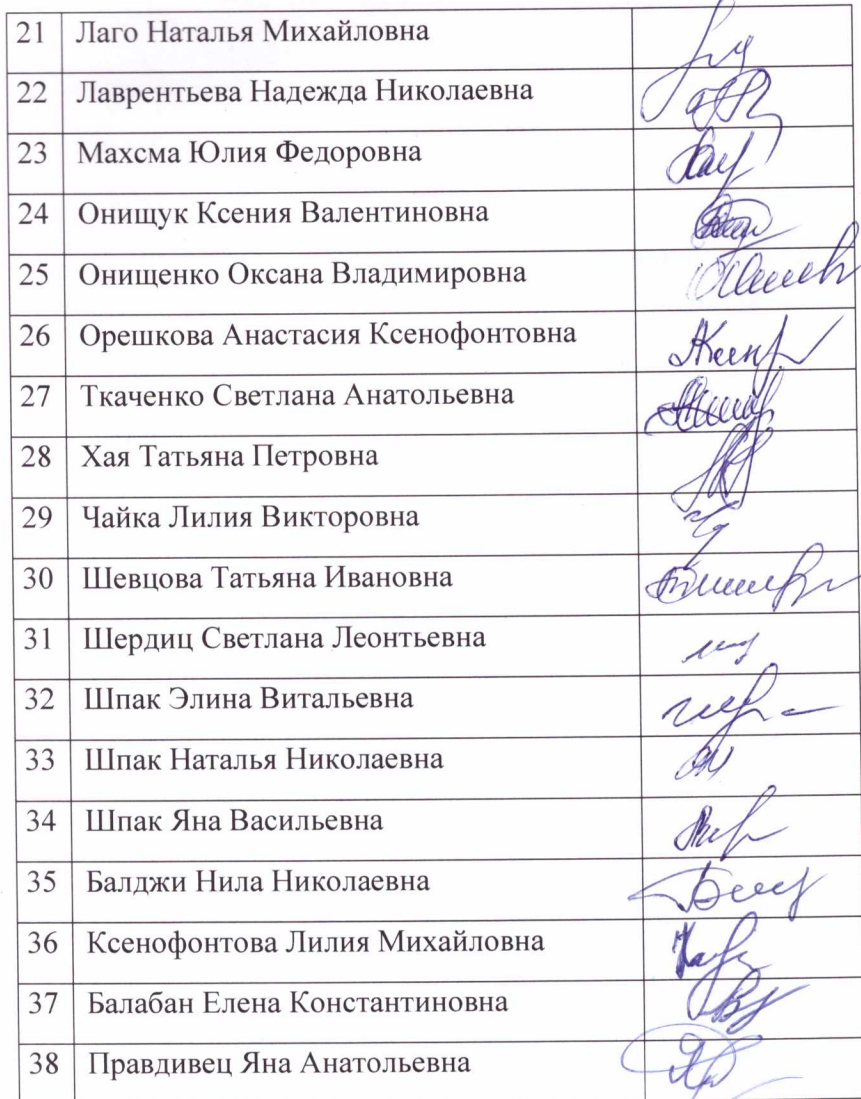 21 Лаго Наталья Михайловна
22 Лаврентьева Надежда Николаевна
23 Махсма Юлия Федоровна
24 Онищук Ксения Валентиновна
25 Онищенко Оксана Владимировна
26 Орешкова Анастасия Ксенофонтовна
27 Ткаченко Светлана Анатольевна
28 Хая Татьяна Петровна
29 Чайка Лилия Викторовна
30 Шевцова Татьяна Ивановна
31 Шердиц Светлана Леонтьевна
32 Шпак Элина Витальевна
33 Шпак Наталья Николаевна
34 Шпак Яна Васильевна
35 Балджи Нила Николаевна
36 Ксенофонтова Лилия Михайловна
37 Балабан Елена Константиновна
38 Правдивец Яна Анатольевна